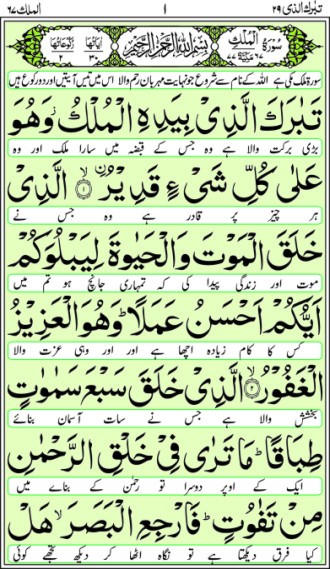 تبٰرك الذی ۲۹ ۱ الملك ۶۷
سُوْرَةُ الْمُلْكِ بِسْمِ اللّٰهِ الرَّحْمٰنِ الرَّحِيْمِ اٰيَاتُهَا ۳۰ رُكُوْعَاتُهَا ۲
سورة ملک مکی ہے اللہ کے نام سے شروع جو نہایت مہربان رحم والا اس میں تیس آیتیں اور دو رکوع ہیں
تَبٰرَكَ الَّذِیْ بِیَدِهِ الْمُلْكُ ؗ وَهُوَ
بڑی برکت والا ہے وہ جس کے قبضہ میں سارا ملک اور وہ
عَلٰی كُلِّ شَیْءٍ قَدِیْرُ ۙ۝۱ الَّذِیْ
ہر چیز پر قادر ہے وہ جس نے
خَلَقَ الْمَوْتَ وَالْحَیٰوةَ لِیَبْلُوَكُمْ
موت اور زندگی پیدا کی کہ تمہاری جانچ ہو تم میں
اَیُّكُمْ اَحْسَنُ عَمَلًا ؕ وَهُوَ الْعَزِیْزُ
کس کا کام زیادہ اچھا ہے اور اور وہی عزت والا
الْغَفُوْرُ ۙ۝۲ الَّذِیْ خَلَقَ سَبْعَ سَمٰوٰتٍ
بخشش والا ہے جس نے سات آسمان بنائے
طِبَاقًا ؕ مَا تَرٰی فِیْ خَلْقِ الرَّحْمٰنِ
ایک کے اوپر دوسرا تو رحمٰن کے بنانے میں
مِنْ تَفٰوُتٍ ؕ فَارْجِعِ الْبَصَرَ ۙ هَلْ
کیا فرق دیکھتا ہے تو نگاہ اٹھا کر دیکھ تجھے کوئی